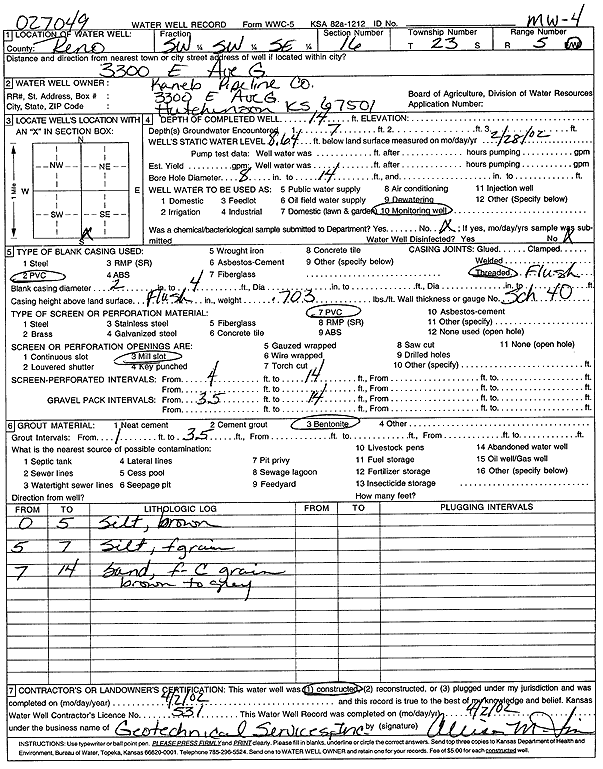 027049 WATER WELL RECORD Form WWC-5 KSA 82a-1212 ID No. MW-4
1 LOCATION OF WATER WELL: Fraction Section Number Township Number Range Number
County: Reno SW ¼ SW ¼ SE ¼ 16 T 23 S R 5 E/W
Distance and direction from nearest town or city street address of well if located within city?
3300 E Ave G
2 WATER WELL OWNER: Kaneb Pipeline Co.
RR#, St. Address, Box # : 3300 E Ave G Board of Agriculture, Division of Water Resources
City, State, ZIP Code : Hutchinson KS 67501 Application Number:
3 LOCATE WELL'S LOCATION WITH AN "X" IN SECTION BOX:
N
NW NE
W E
SW SE
X
S
1 Mile
4 DEPTH OF COMPLETED WELL 14 ft. ELEVATION:
Depth(s) Groundwater Encountered 1 7 ft. 2. ft. 3. ft.
WELL'S STATIC WATER LEVEL 8.64 ft. below land surface measured on mo/day/yr 2/28/02
Pump test data: Well water was ft. after hours pumping gpm
Est. Yield gpm: Well water was ft. after hours pumping gpm
Bore Hole Diameter 8 in. to 14 ft., and in. to ft.
WELL WATER TO BE USED AS: 5 Public water supply 8 Air conditioning 11 Injection well
1 Domestic 3 Feedlot 6 Oil field water supply 9 Dewatering 12 Other (Specify below)
2 Irrigation 4 Industrial 7 Domestic (lawn & garden) 10 Monitoring well
Was a chemical/bacteriological sample submitted to Department? Yes No X ; If yes, mo/day/yrs sample was submitted
Water Well Disinfected? Yes No X
5 TYPE OF BLANK CASING USED: 5 Wrought iron 8 Concrete tile CASING JOINTS: Glued Clamped
1 Steel 3 RMP (SR) 6 Asbestos-Cement 9 Other (specify below) Welded
2 PVC 4 ABS 7 Fiberglass Threaded Flush
Blank casing diameter 2 in. to 4 ft., Dia in. to ft., Dia in. to ft.
Casing height above land surface Flush in., weight .703 lbs./ft. Wall thickness or gauge No. Sch 40
TYPE OF SCREEN OR PERFORATION MATERIAL: 7 PVC 10 Asbestos-cement
1 Steel 3 Stainless steel 5 Fiberglass 8 RMP (SR) 11 Other (specify)
2 Brass 4 Galvanized steel 6 Concrete tile 9 ABS 12 None used (open hole)
SCREEN OR PERFORATION OPENINGS ARE: 5 Gauzed wrapped 8 Saw cut 11 None (open hole)
1 Continuous slot 3 Mill slot 6 Wire wrapped 9 Drilled holes
2 Louvered shutter 4 Key punched 7 Torch cut 10 Other (specify) ft.
SCREEN-PERFORATED INTERVALS: From 4 ft. to 14 ft., From ft. to ft.
From ft. to ft., From ft. to ft.
GRAVEL PACK INTERVALS: From 3.5 ft. to 14 ft., From ft. to ft.
From ft. to ft., From ft. to ft.
6 GROUT MATERIAL: 1 Neat cement 2 Cement grout 3 Bentonite 4 Other
Grout Intervals: From 1 ft. to 3.5 ft., From ft. to ft., From ft. to ft.
What is the nearest source of possible contamination: 10 Livestock pens 14 Abandoned water well
1 Septic tank 4 Lateral lines 7 Pit privy 11 Fuel storage 15 Oil well/Gas well
2 Sewer lines 5 Cess pool 8 Sewage lagoon 12 Fertilizer storage 16 Other (specify below)
3 Watertight sewer lines 6 Seepage pit 9 Feedyard 13 Insecticide storage
Direction from well? How many feet?
FROM TO LITHOLOGIC LOG FROM TO PLUGGING INTERVALS
0 5 Silt, brown
5 7 Silt, f grain
7 14 Sand, f-c grain
brown to grey
7 CONTRACTOR'S OR LANDOWNER'S CERTIFICATION: This water well was (1) constructed, (2) reconstructed, or (3) plugged under my jurisdiction and was
completed on (mo/day/year) 4/2/02 and this record is true to the best of my knowledge and belief. Kansas
Water Well Contractor's Licence No. 531 This Water Well Record was completed on (mo/day/yr) 4/2/02
under the business name of Geotechnical Services, Inc by (signature)
INSTRUCTIONS: Use typewriter or ball point pen. PLEASE PRESS FIRMLY and PRINT clearly. Please fill in blanks, underline or circle the correct answers. Send top three copies to Kansas Department of Health and
Environment, Bureau of Water, Topeka, Kansas 66620-0001. Telephone 785-296-5524. Send one to WATER WELL OWNER and retain one for your records. Fee of $5.00 for each constructed well.